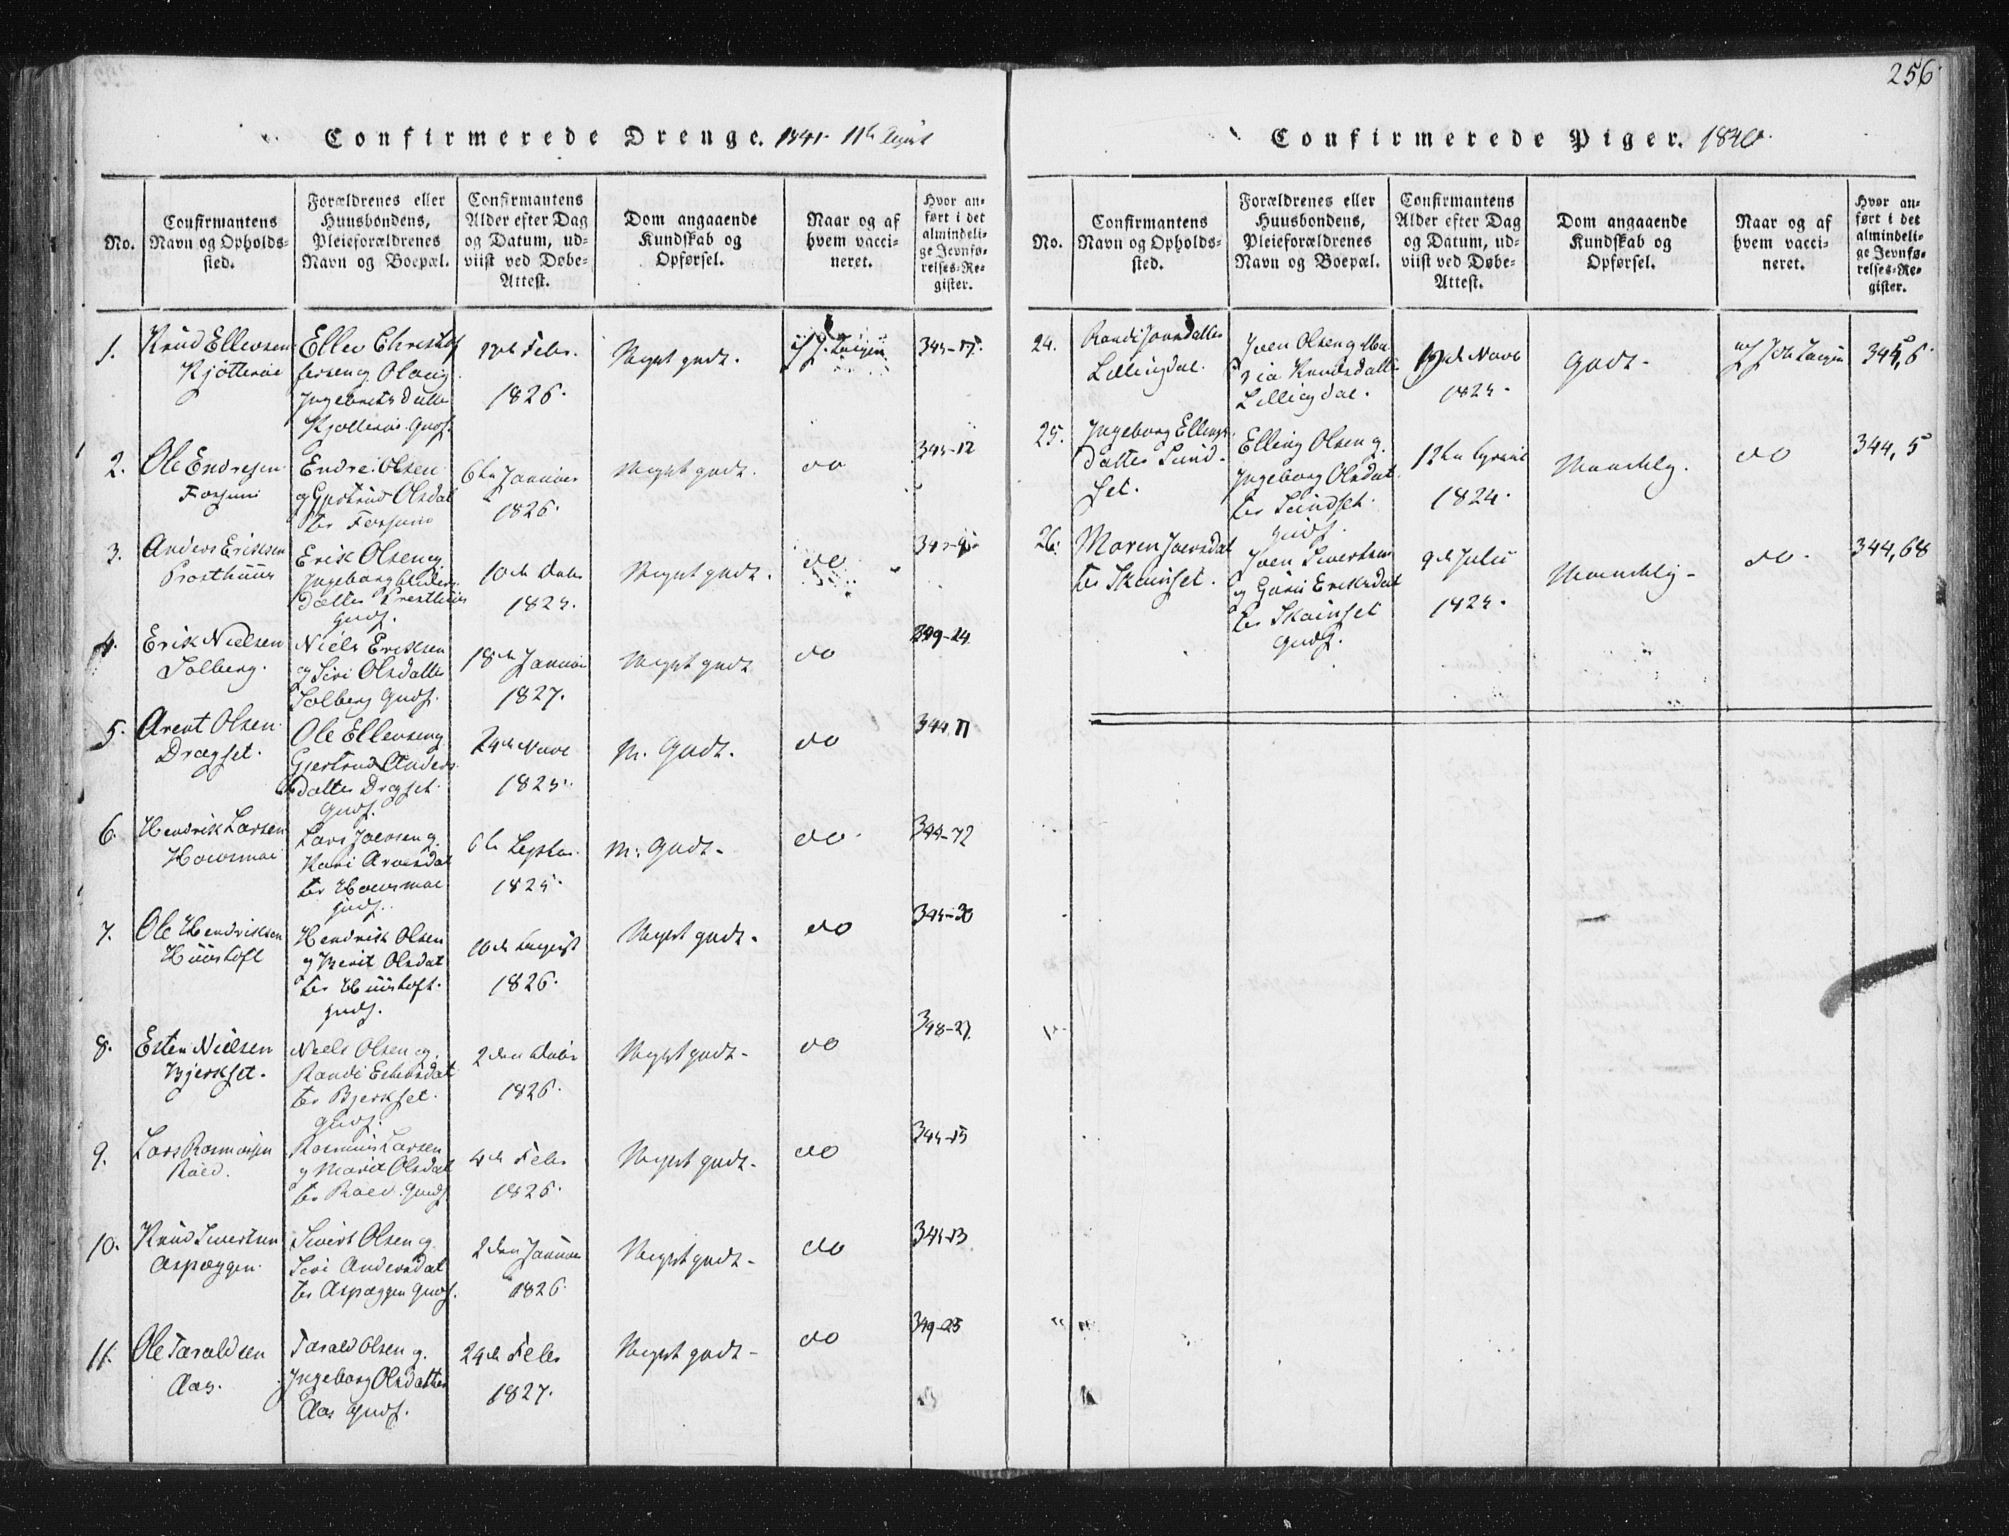 256
Confirmerede Drenge. 1841 11te
No.
Confirmantens
Navn og Opholds-
sted.
Forældrenes eller
Huusbondens,
Pleieforældrenes
Navn og Boepæl.
Confirmantens
Alder efter Dag
og Datum, ud-
viist ved Døbe-
Attest.
Dom angaaende
Kundskab og
Opførsel.
Naar og af
hvem vacci-
neret.
Hvor an-
ført i det
almindeli-
ge Jevnfø-
relses-Re-
gister.
1.
Knud Ellevsen
Ellev Christof
fersen og Olaug
Ingebrits Datter
Gudf.
Febr.
1826.
Meget godt.
2.
Ole Endresen
Forsum
Endre Olsen
og Gjertrud Olsdat
ter Forsum
6te Januar
1826.
Meget godt.
do
345-12
3.
Anders Eriksen
Presthuus
Erik Olsen og
Ingeborg Anders
datter Presthuus
Gudf.
10de
1825.
Meget godt.
do
4.
Erik Nielsen
Solberg.
Niels Eriksen
og Siri Olsdatter
Solberg Gudf.
18de Januar
1827.
Meget godt
do
349-24
5.
Arent Olsen
Dragset.
Ole Ellevsen og
Gjertrud Anders
datter Dragset
Gudf.
24de Novr
1825.
M. Godt.
do
344 71
6.
Hendrik Larsen
Lars Joensen og
Kari Arnesdat
ter
Gudf.
6te Septbr
1825.
M. Godt.
do
344-72
7.
Ole Hendriksen
Huustoft
Hendrik Olsen
og Berit Olsdat
ter Huustoft.
Gudf.
10de August
1826.
Meget godt.
do
345-30
8.
Esten Nielsen
Bjerkset.
Niels Olsen og
Randi Estensdat
ter Bjerkset.
Gudf.
2den
1826.
Meget godt.
do
348-27
9.
Lars Rasmussen
Røed.
Rasmus Larsen
og Marit Olsdat
ter Røed Gudf.
4de Febr
1826.
Meget godt.
do
345-15
10.
Knud Sivertsen
Aspæggen.
Sivert Olsen og
Siri Andersdat
ter Aspæggen Gudf.
2den Januar
1826.
Meget godt.
do
345-13
11.
Ole Taraldsen
Aas.
Tarald Olsen og
Ingeborg Olsdatter
Aas Gudf.
24de Febr
1827.
Meget godt.
do
349-25
Confirmerede Piger. 1840.
No.
Confirmantens
Navn og Opholds-
sted.
Forældrenes eller
Huusbondens,
Pleieforældrenes
Navn og Boepæl.
Confirmantens
Alder efter Dag
og Datum, ud-
viist ved Døbe-
Attest.
Dom angaaende
Kundskab og
Opførsel.
Naar og af
hvem vacci-
neret.
Hvor an-
ført i det
almindeli-
ge Jevnfø-
relses-Re-
gister.
24.
Randi Joensdatter
Lillingdal.
Joen Olsen og Ma
ria Knudsdatter
Lillingdal.
Novr
1825.
Godt.
25.
Ingeborg Ellings
datter Sund
set.
Elling Olsen og
Ingeborg Olsdat
ter Sundset.
Gudf.
12te
1824.
Maadelig.
do
344, 5
26.
Maren Joensdat
ter Skamset.
Joen Sivertsen
og Guru Eriksdat
ter Skamset
Gudf.
9de Julii
1825.
Maadelig.
do
344, 68